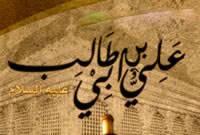 علي بن ابي طالب
عليه السلام